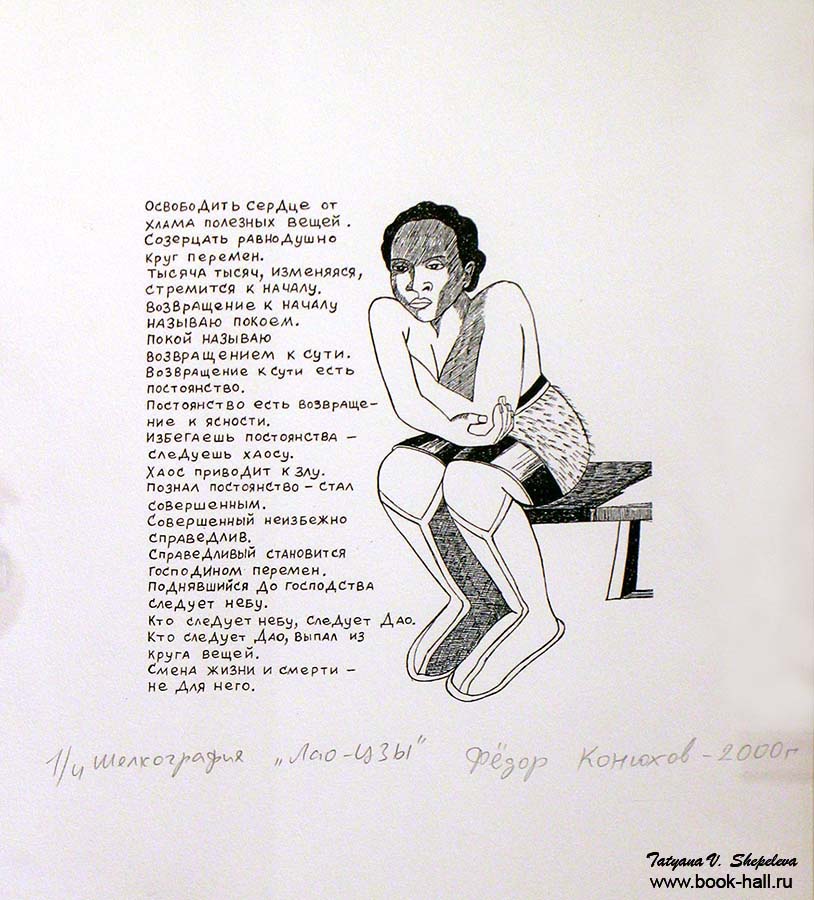 Освободить сердце от
хлама полезных вещей.
Созерцать равнодушно
круг перемен.
Тысяча тысяч, изменяяся,
стремится к началу.
Возвращение к началу
называю покоем.
Покой называю
возвращением к сути.
Возвращение к сути есть
постоянство.
Постоянство есть возвраще-
ние к ясности.
Избегаешь постоянства –
следуешь хаосу.
Хаос приводит к злу.
Познал постоянство – стал
совершенным.
Совершенный неизбежно
справедлив.
Справедливый становится
господином перемен.
Поднявшийся до господства
следует небу.
Кто следует небу, следует Дао.
Кто следует Дао, выпал из
круга вещей.
Смена жизни и смерти –
не для него.
1/и Шелкография „Лао-Цзы" Фёдор Конюхов – 2000г
Tatyana V. Shepeleva
www.book-hall.ru